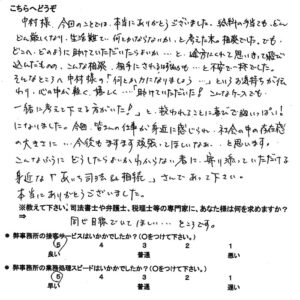 こちらへどうぞ
中村様、今回のことでは、本当にありがとうございました。給料の手当も、どん
どん厳しくなり、生活難で、何とかならないか、と考えた末の相談でした。でも、
どこへ、どのように助けていただいたらよいか…と、途方にくれて思いきって飛び
込んだものの、こんな相談、相手にされる時もも…と不安で一杯でした。
そんなところへ中村様の「何とか力になりましょう…」という気持ちが伝
わり、心の中が軽く、優しく…「助けていただいた！こんなケースでも、
一緒に考えて下さる方がいた！」と、救われることに喜びで胸いっぱい！
になりました。今回、皆さんの仕事が身近に感じられ、社会の中の存在感
の大きさに…今後もますます頑張ってほしいなあ…と思います。
こんなふうにどうしたらよいかわからない者に、寄り添っていただける
身近な「あいち司法&相続」さんであって下さい。
本当にありがとうございました。
※教えて下さい。司法書士や弁護士、税理士等の専門家に、あなた様は何を求めますか？
⇒ 同じ目線でいてほしい…ところです。
● 弊事務所の接客サービスはいかがでしたか？（○をつけて下さい。）
5 4 3 2 1
良い 普通 悪い
● 弊事務所の業務処理スピードはいかがでしたか？（○をつけて下さい。）
5 4 3 2 1
早い 普通 遅い